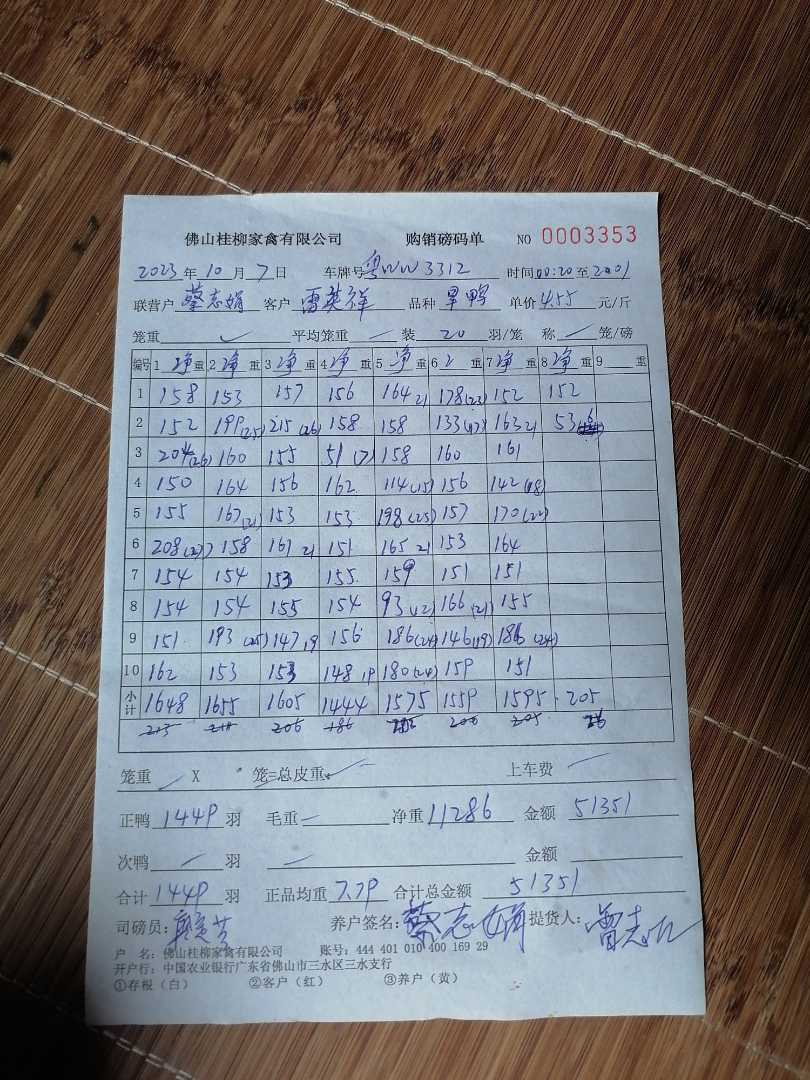 佛山桂柳家禽有限公司 购销磅码单 NO 0003353
2023 年 10 月 7 日 车牌号 粤WW3312 时间 00:20 至 2:01
联营户 蔡志娟 客户 雷英祥 品种 旱鸭 单价 4.55 元/斤
笼重 ✓ 平均笼重 — 装 20 羽/笼 称 — 笼/磅
编号 1 净重 2 净重 3 净重 4 净重 5 净重 6 2 重 7 净重 8 净重 9 重
1 158 153 157 156 164 21 178(23) 152 152
2 152 199(25) 215(26) 158 158 133(17) 163 21 53
3 204(26) 160 155 51(7) 158 160 161
4 150 164 156 162 114(15) 156 142(18)
5 155 167(21) 153 153 198(25) 157 170(22)
6 208(27) 158 161 21 151 165 21 153 164
7 154 154 153 155 159 151 151
8 154 154 155 154 93(12) 166(21) 155
9 151 193(25) 147 19 156 186(24) 146(19) 186(24)
10 162 153 153 148 19 180(24) 159 151
小计 1648 1655 1605 1444 1575 1559 1595 205
213 211 206 186 200 205
笼重 — X 笼=总皮重: 上车费 —
正鸭 1449 羽 毛重 — 净重 11286 金额 51351
次鸭 — 羽 — 金额
合计 1449 羽 正品均重 7.79 合计总金额 51351
司磅员: 养户签名: 蔡志娟 提货人:
户 名: 佛山桂柳家禽有限公司 账号: 444 401 010 400 169 29
开户行: 中国农业银行广东省佛山市三水区三水支行
①存根(白) ②客户(红) ③养户(黄)